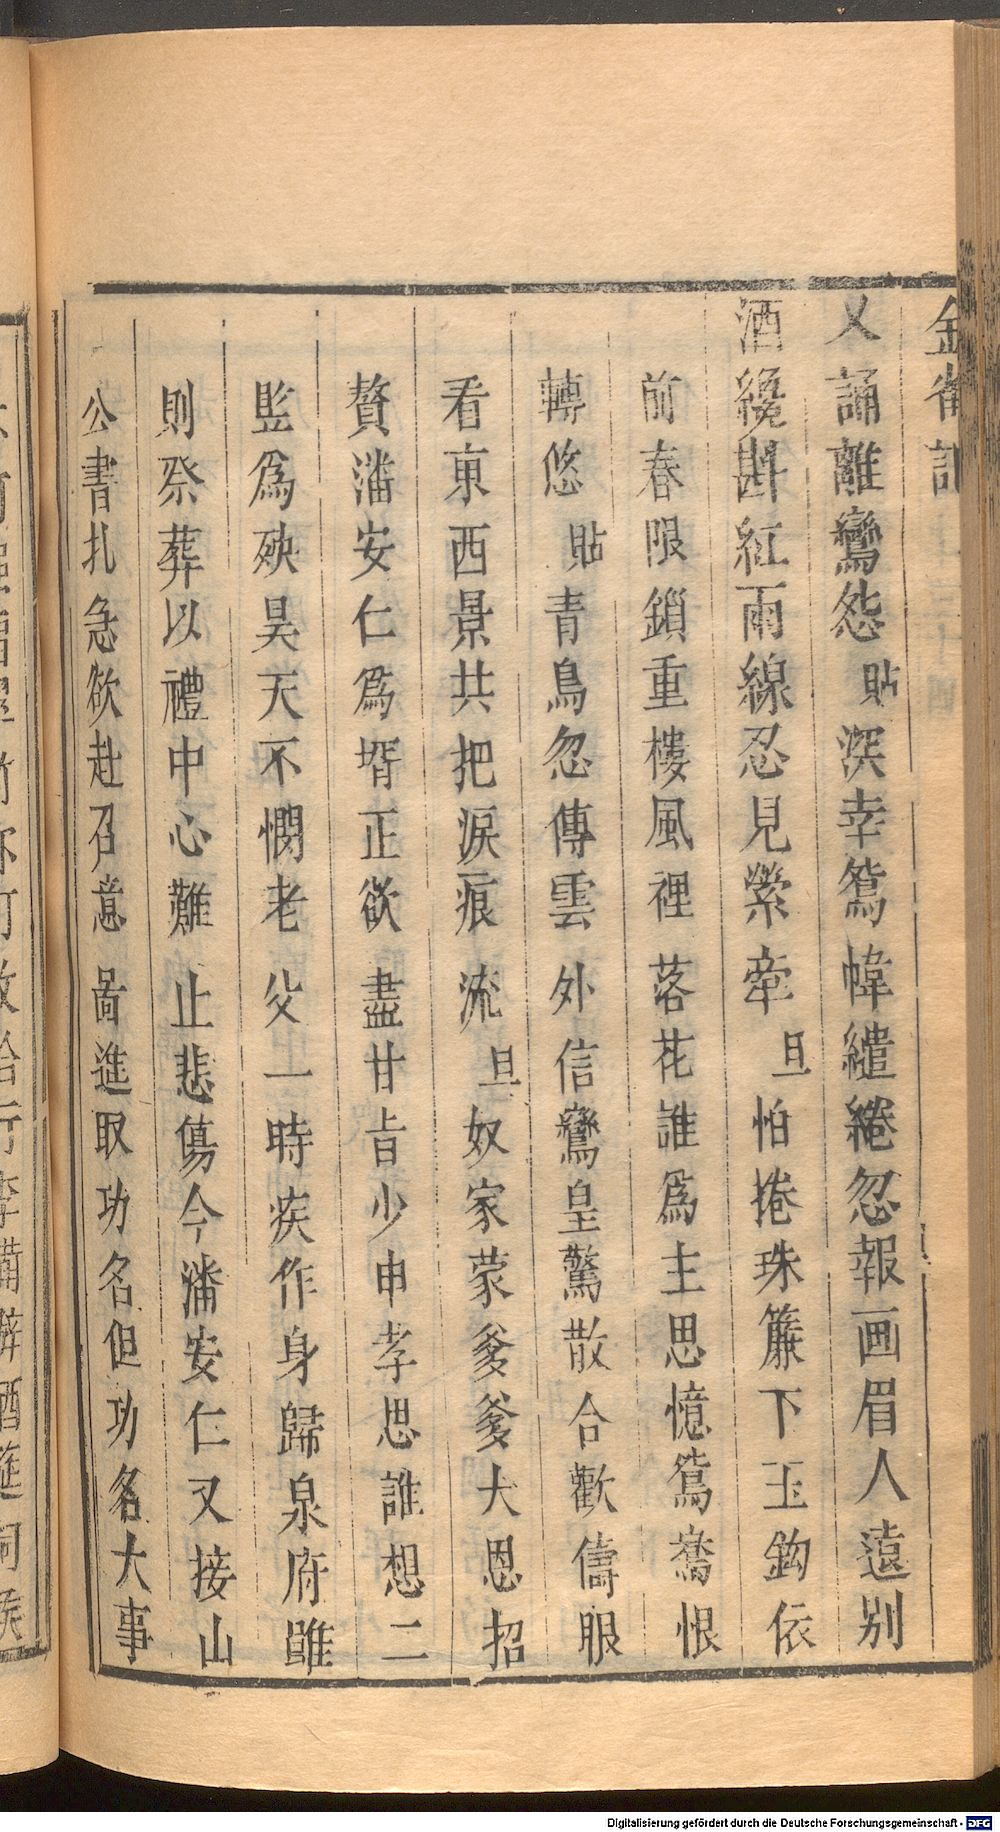 金雀記
又誦離鸞怨 貼 深幸鴛幃繾綣忽報画眉人遠別
酒纔斟紅雨線忍見縈牽 旦 怕捲珠簾下玉鈎依
前春限鎖重樓風裡落花誰爲主思憶鴛鴦恨
轉悠 貼 青鳥忽傳雲外信鸞皇驚散合歡儔眼
看東西景共把淚痕流 旦 奴家蒙爹爹大恩招
贅潘安仁爲壻正欲盡甘旨少申孝思誰想二
監爲殃昊天不憫老父一時疾作身歸泉府雖
則祭葬以禮中心難止悲傷今潘安仁又接山
公書扎急欲赴召意啚進取功名但功名大事
Digitalisierung gefördert durch die Deutsche Forschungsgemeinschaft - DFG